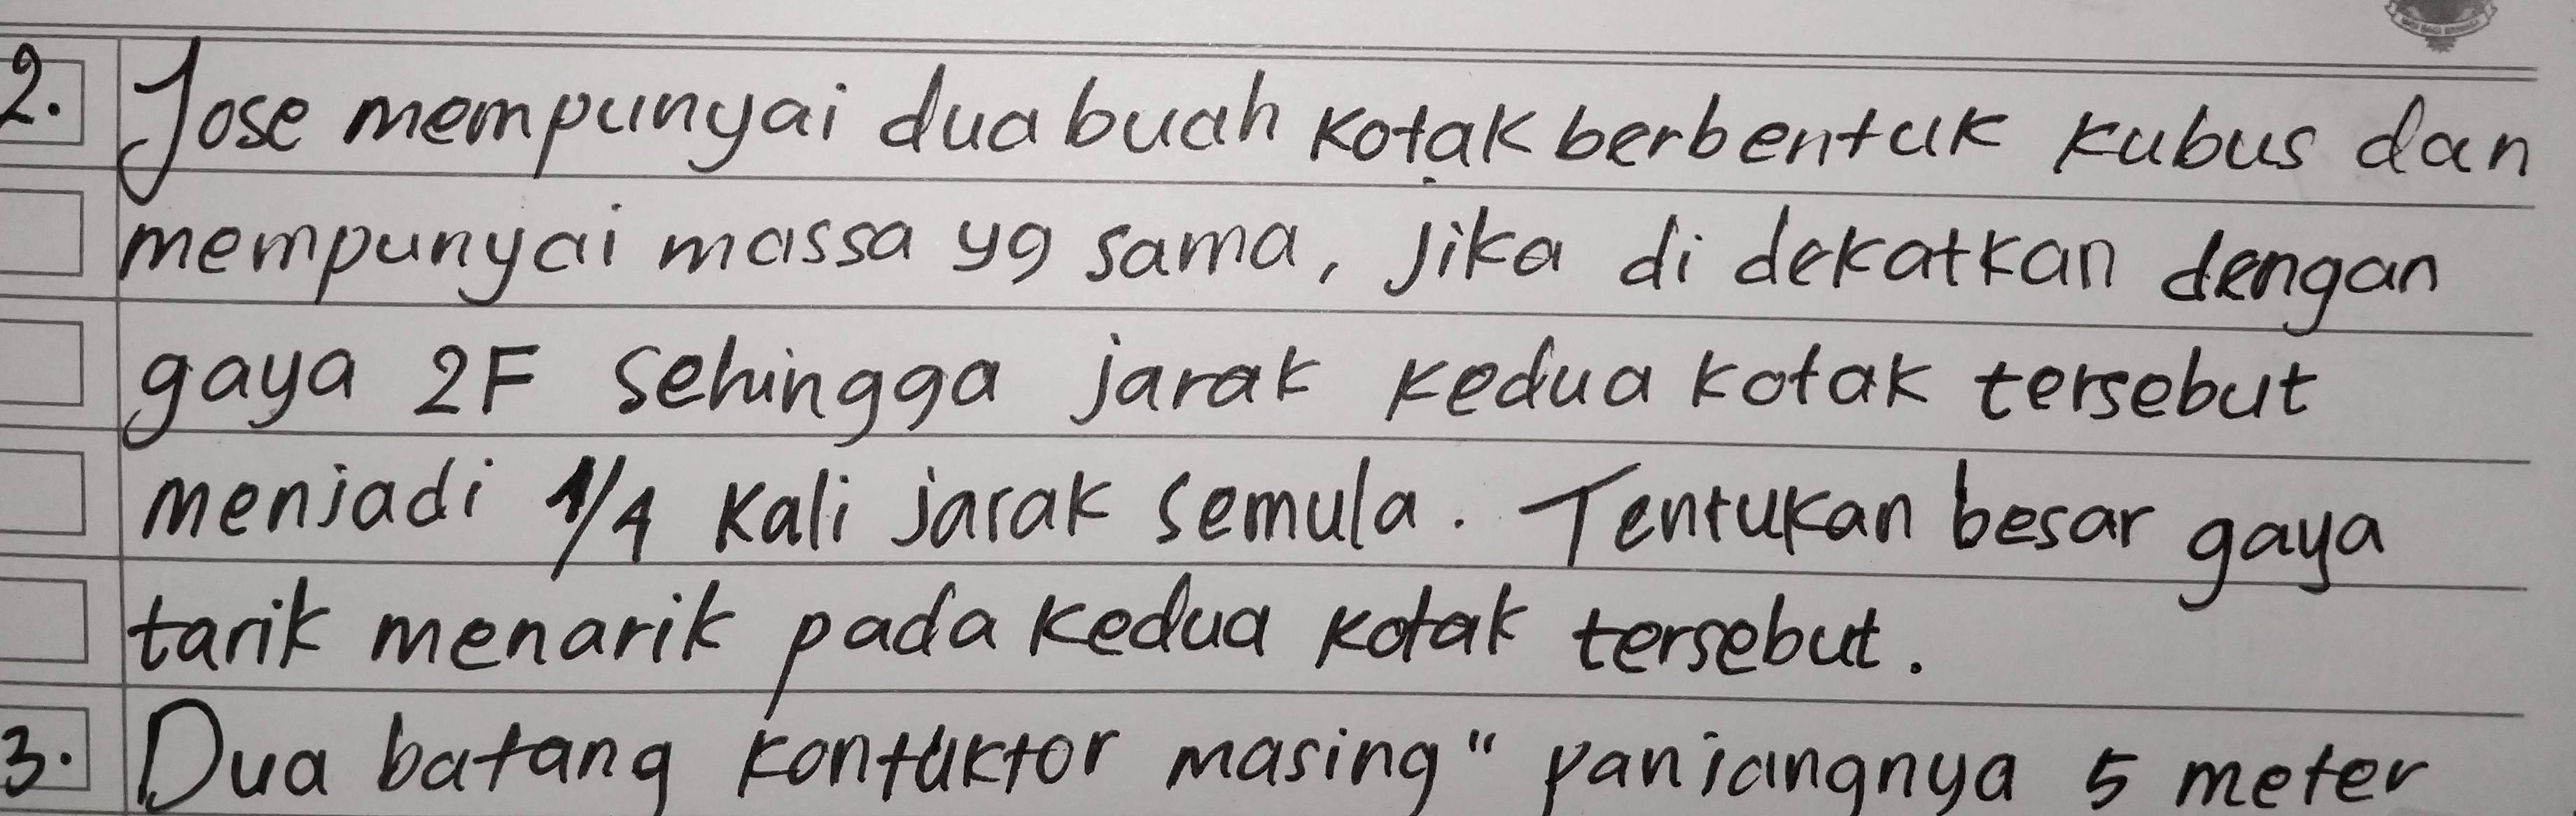 2. Jose mempunyai dua buah kotak berbentuk kubus dan
mempunyai massa yg sama, Jika di dekatkan dengan
gaya 2F sehingga jarak kedua kotak tersebut
menjadi 1/4 kali jarak semula. Tentukan besar gaya
tarik menarik pada kedua kotak tersebut.
3. Dua batang kontuktor masing" panjangnya 5 meter